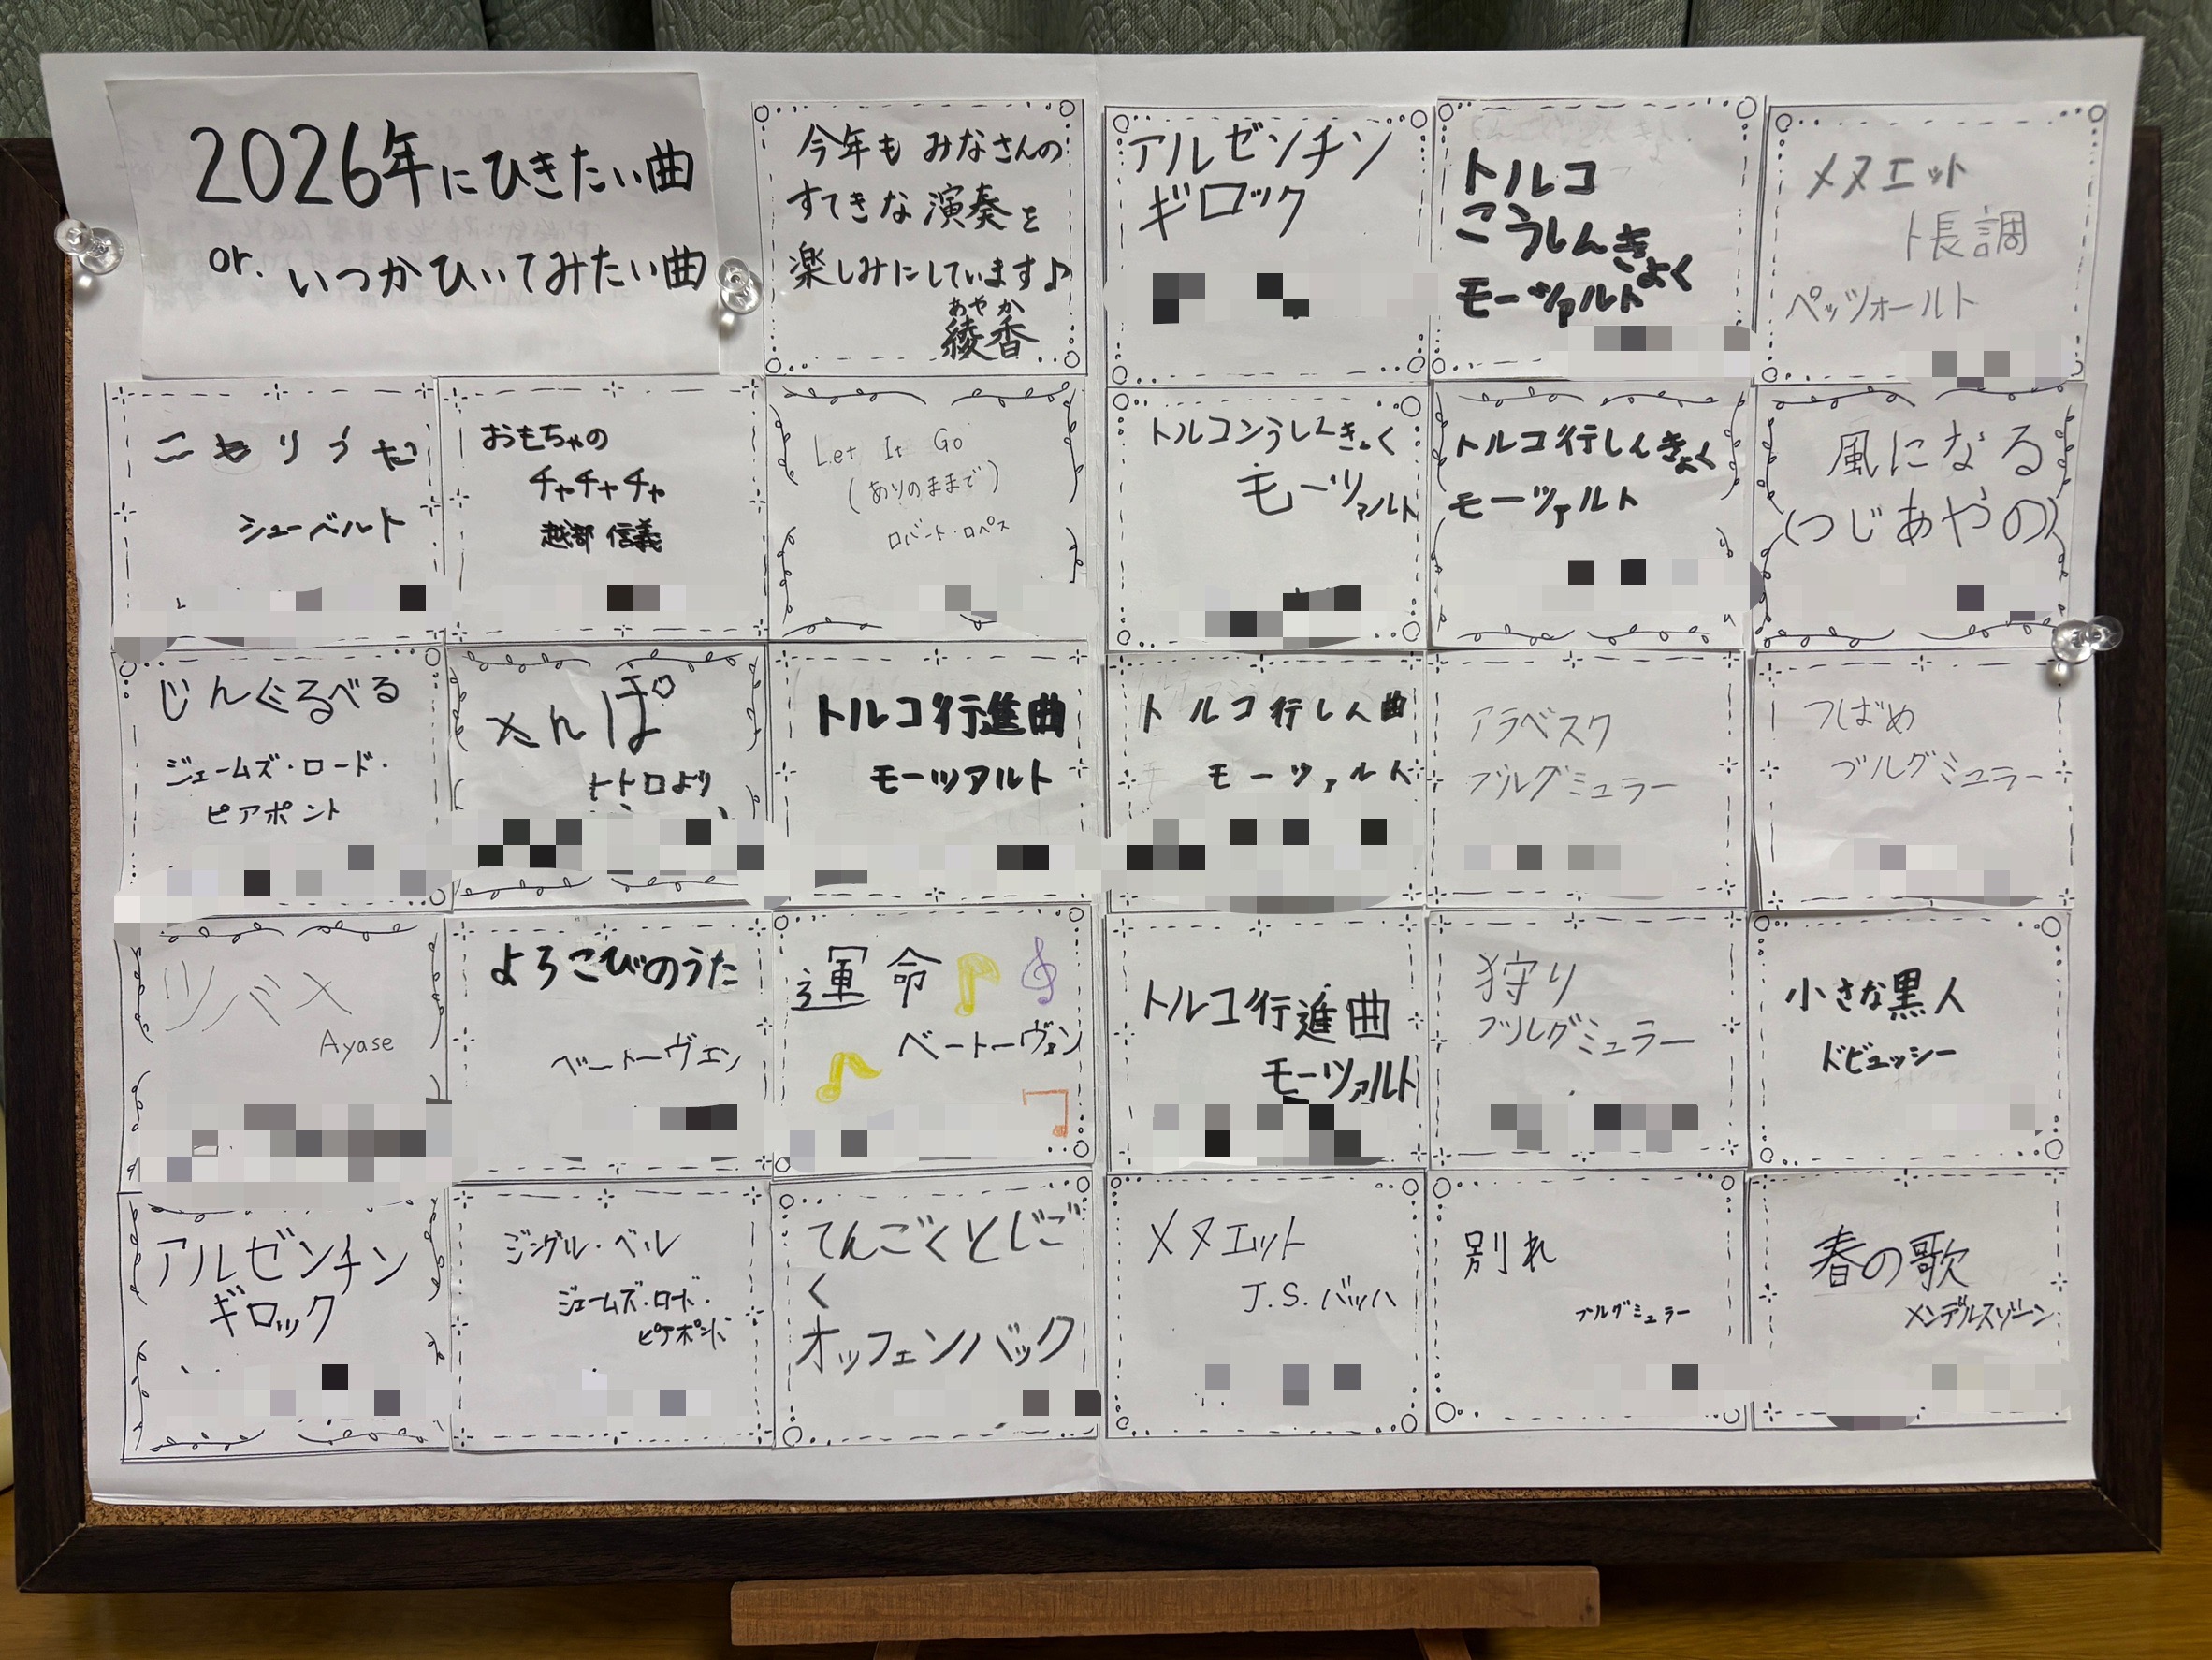 2026年にひきたい曲
or. いつかひいてみたい曲
今年も みなさんの
すてきな演奏を
楽しみにしています♪
あやか
綾香
アルゼンチン
ギロック
トルコ
こうしんきょく
モーツァルト
メヌエット
ト長調
ペッツォールト
こもりうた
シューベルト
おもちゃの
チャチャチャ
越部 信義
Let It Go
(ありのままで)
ロバート・ロペス
トルコンうしんきょく
モーツァルト
トルコ行しんきょく
モーツァルト
風になる
(つじあやの)
じんぐるべる
ジェームズ・ロード・
ピアポント
さんぽ
トトロより
トルコ行進曲
モーツアルト
トルコ行しん曲
モーツァルト
アラベスク
ブルグミュラー
つばめ
ブルグミュラー
ツバメ
Ayase
よろこびのうた
ベートーヴェン
運命
ベートーヴェン
トルコ行進曲
モーツァルト
狩り
ブルグミュラー
小さな黒人
ドビュッシー
アルゼンチン
ギロック
ジングル・ベル
ジェームズ・ロード・
ピアポント
てんごくとじご
く
オッフェンバック
メヌエット
J.S.バッハ
別れ
ブルグミュラー
春の歌
メンデルスゾーン